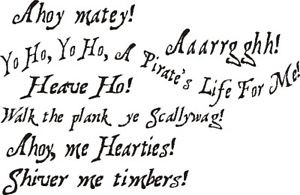 Ahoy matey!
Aaarrg ghh!
Yo Ho, Yo Ho, A Pirate's Life For Me!
Heave Ho!
Walk the plank ye Scallywag!
Ahoy, me Hearties!
Shiver me timbers!